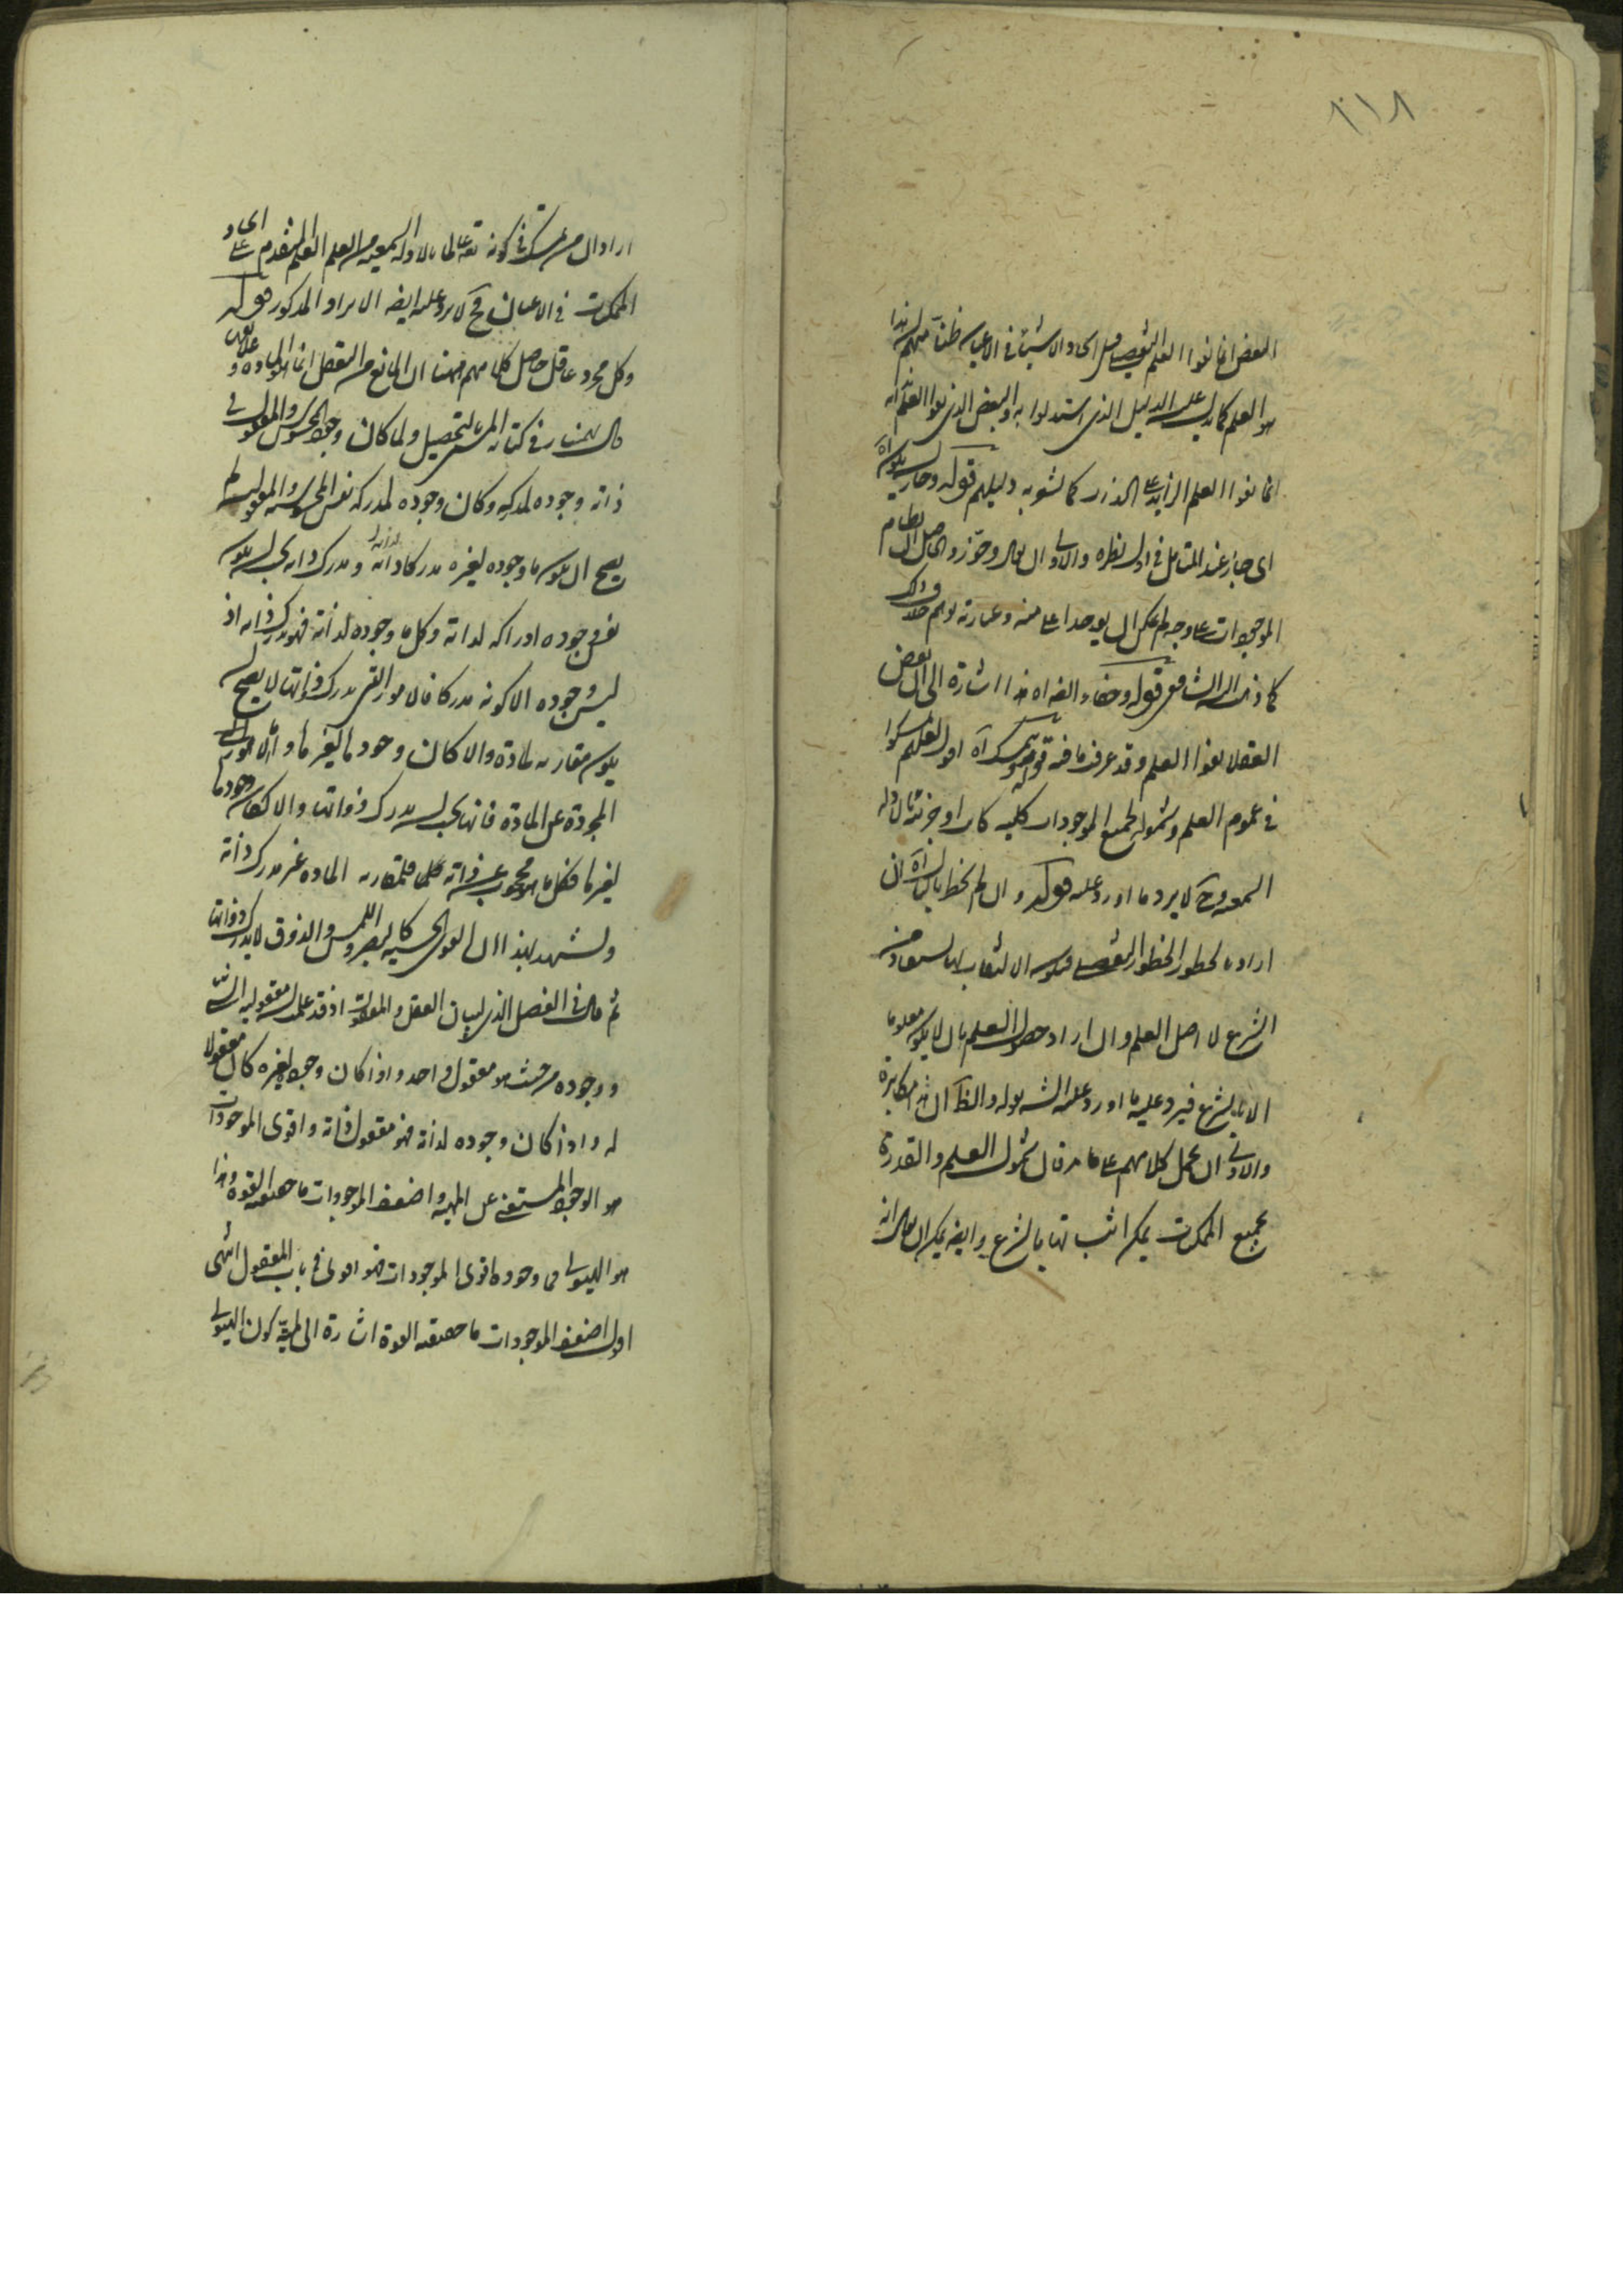 ٢١٨
البعض انما نفوا العلم التفصيلى قبل ايجاد الاشياء فى الاعيان ظنا منهم ان هذا
هو العلم كما يدل عليه الدليل الذى استدلوا به والبعض الذى نفوا العلم انه
انما نفوا العلم الزايد على الذات كما يشعر به دليلهم قوله وجاز ان يكون اه
اى جاز عند المتامل فى اول نظره والاولى ان يقال وجوز والحاصل ان نظام
الموجودات على وجه لم يمكن ان يوجد اعلى منه وعبارته يوهم خلاف ذلك
كما ذكره الشارح قوله وخفاء الفه اه هذا اشارة الى ان بعض
العقلاء نفوا العلم وقد عرفت ما فيه قوله وتمسك اه اول لعلهم تمسكوا
فى عموم العلم وشموله لجميع الموجودات كلية كان او جزئية بالادلة
السمعية وح لا يرد ما اورد عليه قوله وان لم يخطر بالبال اه ان
اراد بالخطور الخطور التفصيلى فيكون الايجاب انما يستفاد من
الشرع لا اصل العلم وان اراد حصول العلم بان لا يكون معلوما
الا بالشرع فيرد عليه ما اورد عليه الش بقوله والظ ان هذا مكابرة
والاولى ان يحمل كلامهم على ما مر فان شمول العلم والقدرة
بجميع الممكنات يمكن اثباتها بالشرع وايضا يمكن ان يقال انه
اراد ان من تمسك فى كونه تعالى عالما بالادلة السمعية من العلم العلم المتقدم على ايجاد
الممكنات فى الاعيان فح لا يرد عليه ايضا الايراد المذكور قوله
وكل مجرد عاقل حاصل كلامهم ههنا ان المانع من التعقل انما هو المادة و
قال بهمنيار فى كتابه المسمى بالتحصيل ولما كان وجود المحسوس والمعقول فى
ذاته وجوده لمدركه وكان وجوده لمدركه نفس المحسوسية والمعقولية لم
يصح ان يكون ما وجوده لغيره مدركا ذاته ومدرك ذاته يجب ان يكون
نفس وجوده ادراكه لذاته وكل ما وجوده لذاته فهو مدرك ذاته اذ
ليس وجوده الا كونه مدركا فالامور التى تدرك ذواتها لا يصح ان
يكون مقارنة لمادة والا كان وجودها لغيرها واما الامور
المجردة عن المادة فانها يجب ان تدرك ذواتها والا لكان وجودها
لغيرها فكل ما هو محجوب عن ذاته فلمقارنة المادة غير مدرك ذاته
ويشهد لهذا ان القوى الحسية كالبصر واللمس والذوق لا تدرك ذواتها
ثم قال فى الفصل الذى لبيان العقل والمعقولات اذ قد علم ان معقولية الشئ
ووجوده من حيث هو معقول واحد واذا كان وجوده لغيره كان معقولا
له واذا كان وجوده لذاته فهو معقول ذاته واقوى الموجودات
هو الوجود المستغنى عن المهية واضعف الموجودات ما حقيقته القوة وهذا
هو الهيولى فما وجوده اقوى الموجودات فهو اقوى فى باب المعقول انتهى
اول اضعف الموجودات ما حقيقته القوة اشارة الى لمية كون الهيولى